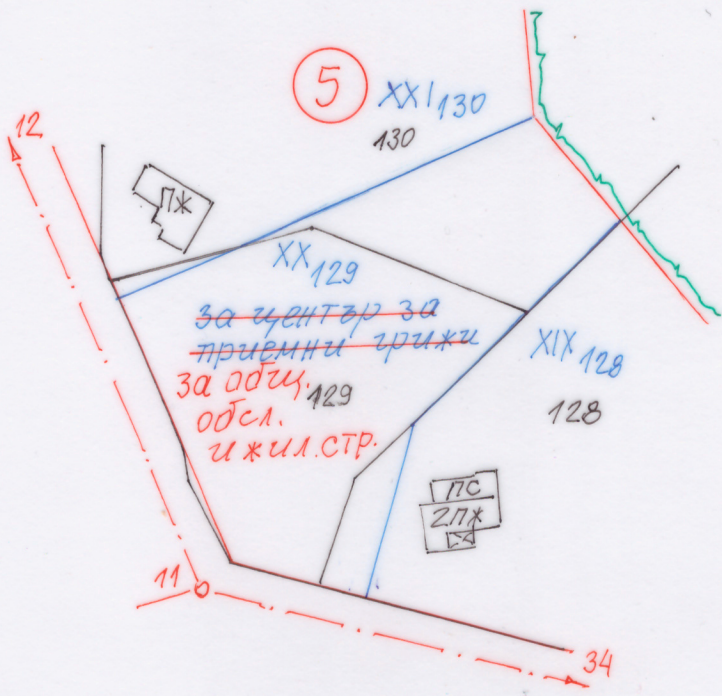 5
XXI 130
130
12
ПЖ
XX 129
за център за
приемни грижи
за общ.
129
обсл.
и жил. стр.
XIX 128
128
ПС
2ПЖ
11
34